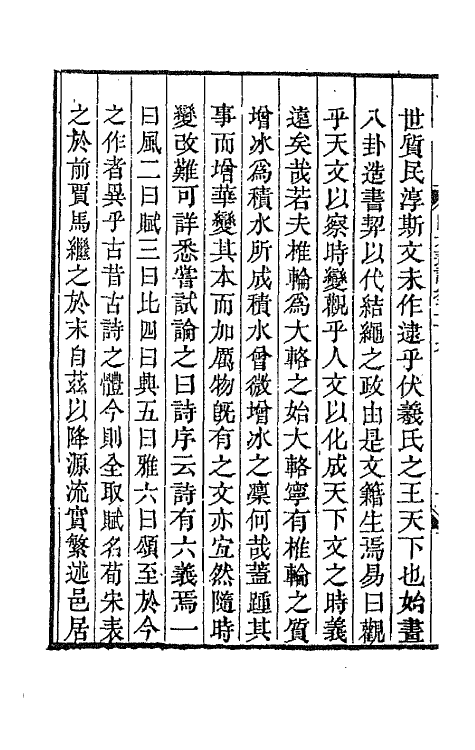 世質民淳斯文未作逮乎伏羲氏之王天下也始畫
八卦造書契以代結繩之政由是文籍生焉易曰觀
乎天文以察時變觀乎人文以化成天下文之時義
遠矣哉若夫椎輪爲大輅之始大輅寧有椎輪之質
增冰爲積水所成積水曾微增冰之凛何哉蓋踵其
事而增華變其本而加厲物旣有之文亦宜然隨時
變改難可詳悉嘗試論之曰詩序云詩有六義焉一
曰風二曰賦三曰比四曰興五曰雅六曰頌至於今
之作者異乎古昔古詩之體今則全取賦名荀宋表
之於前賈馬繼之於末自茲以降源流實繁述邑居